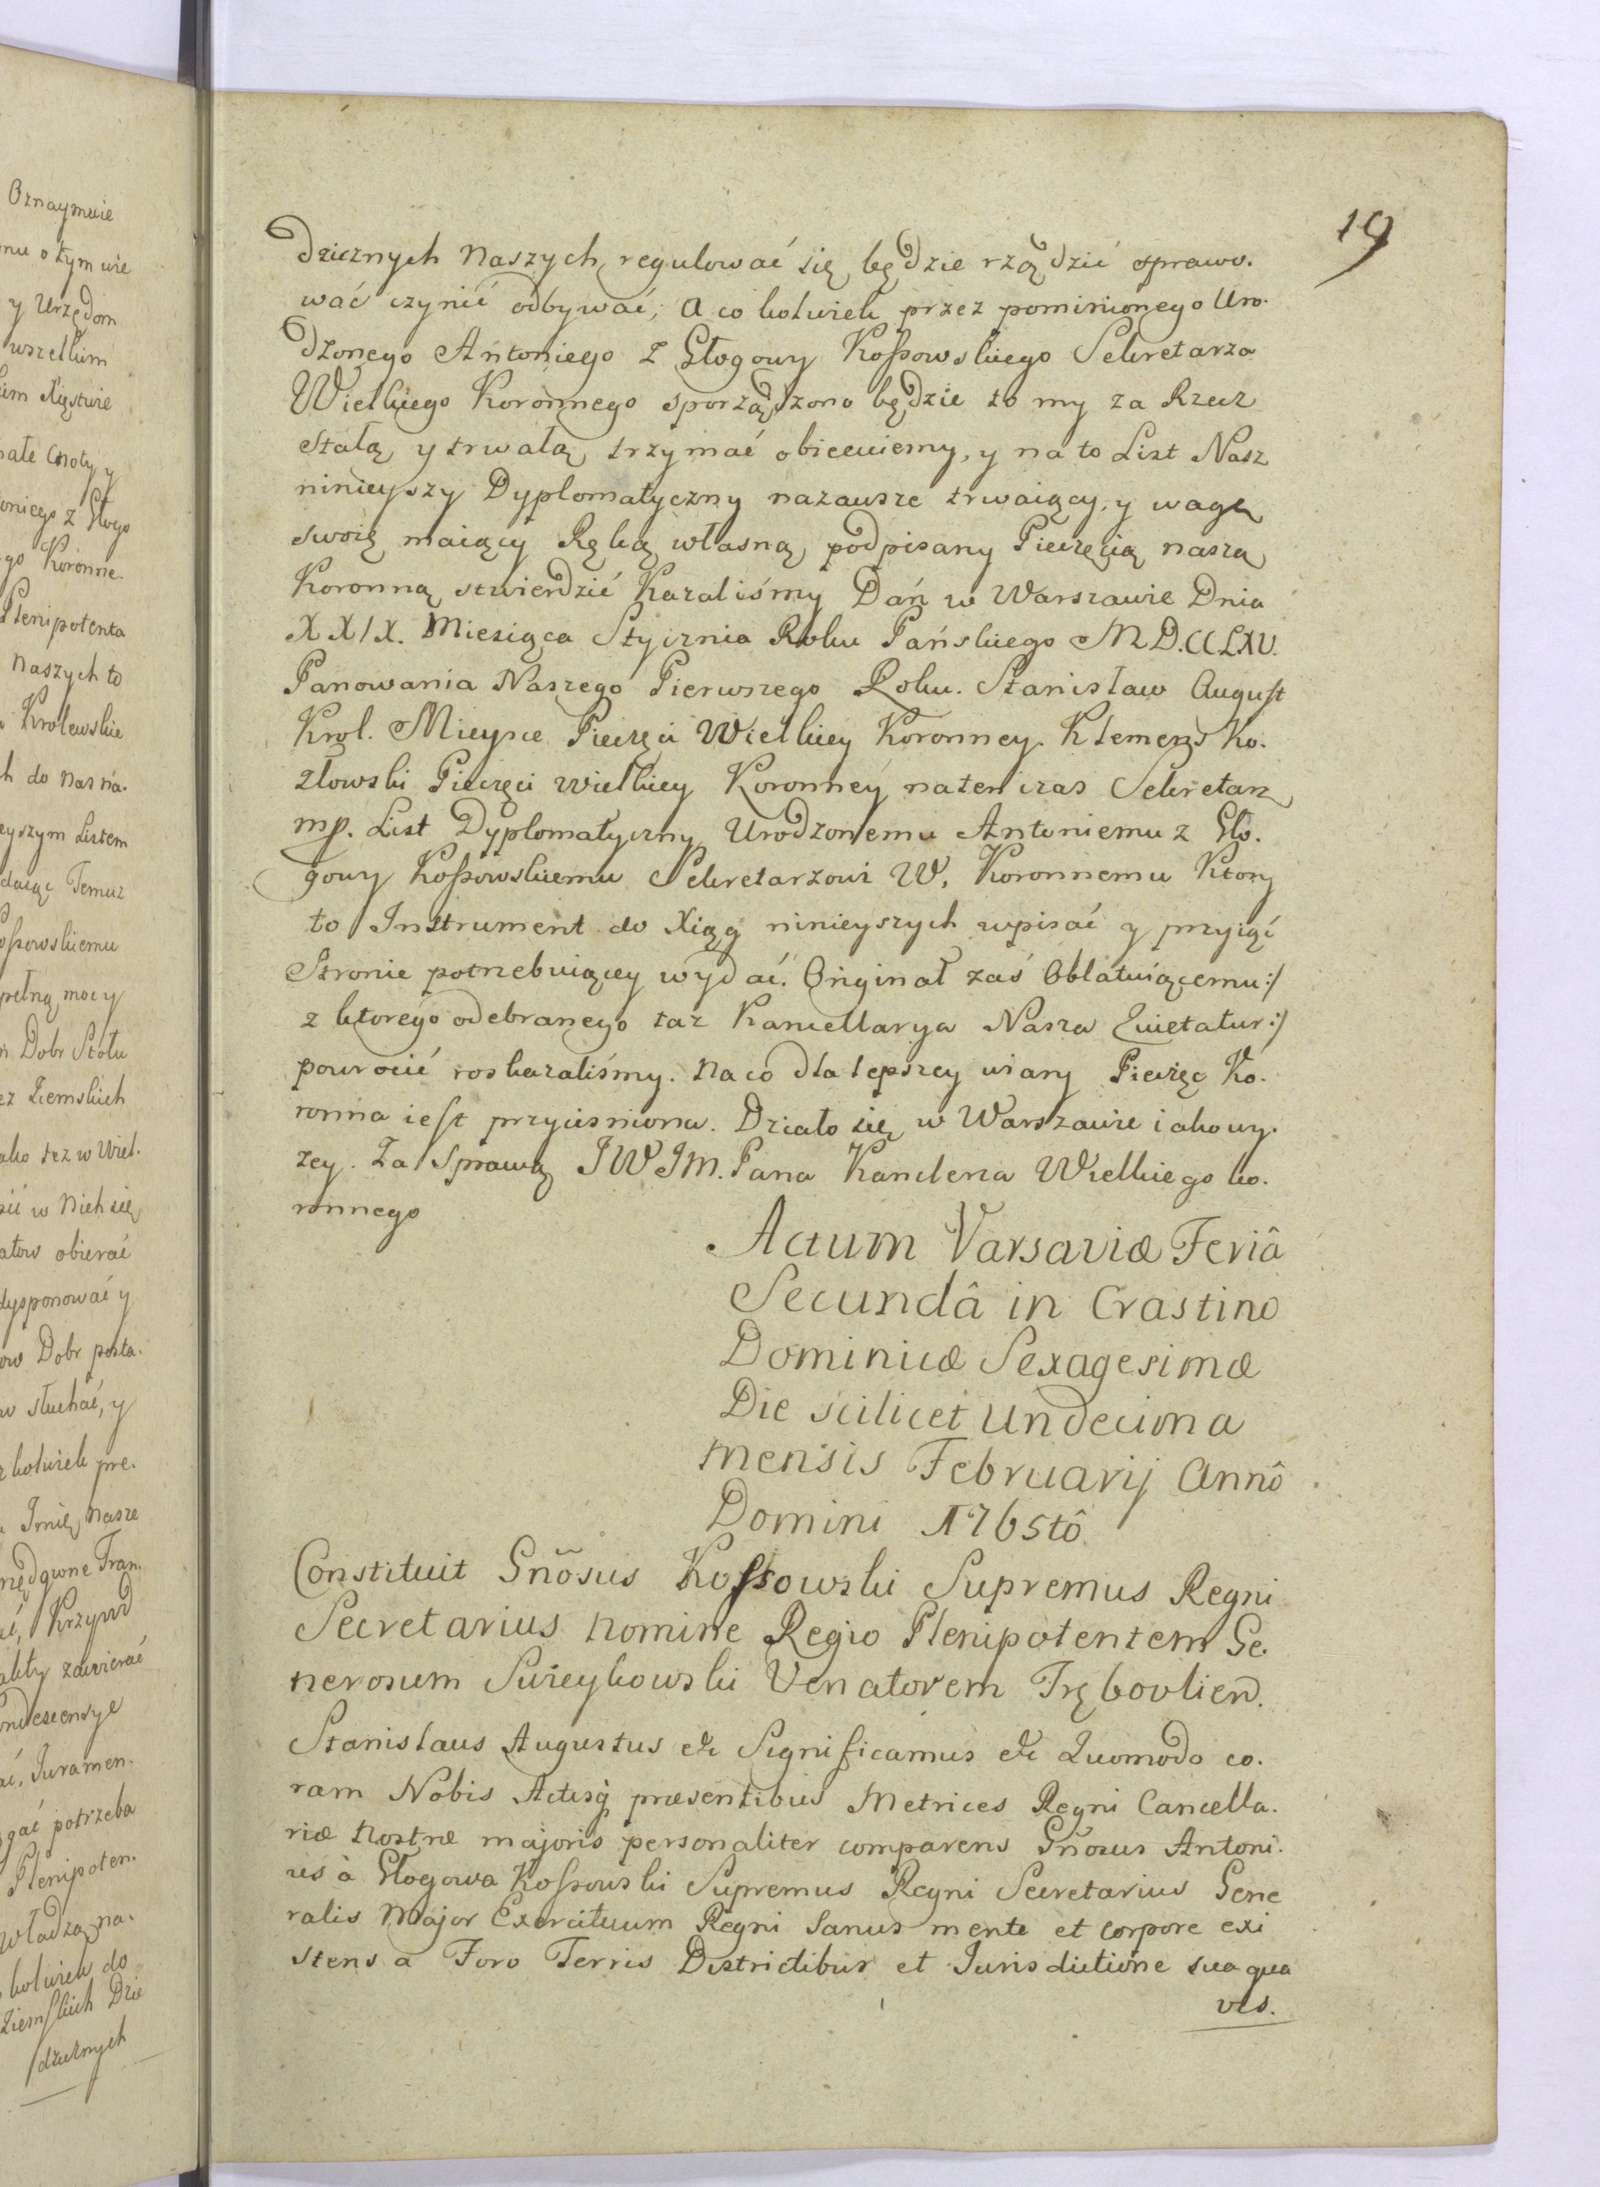 Oznaymuie
o tym wie
y Urzędom
wszelkim
Xięstwie
Cnoty y
z Głogo
go Koronne.
Plenipotenta
Naszych to
Krolewskie
h do Nas na.
eyszym Listem
daiąc Temuz
ossowskiemu
pełną mocy
Dobr Stołu
ez Ziemskich
ako tez w Wiel.
w Nich się
atow obierać
dysponować y
ow Dobr posta.
słuchać, y
kolwiek pre.
Imię Nasze
rzędowne Tran.
Krzywd
zawierać
ondescensye
Juramen.
gać potrzeba
Plenipoten.
Władzą na.
kolwiek do
Ziemskich Dzie
dzicznych
19
dzicznych Naszych regulować się będzie rządzić sprawo.
wać czynić odbywać; A co kolwiek przez pomienionego Uro.
dzonego Antoniego z Głogowy Kossowskiego Sekretarza
Wielkiego Koronnego sporządzono będzie to my za Rzecz
stałą y trwałą trzymać obiecuiemy, y na to List Nasz
ninieyszy Dyplomatyczny nazawsze trwaiący, y wagę
swoię maiący Ręką własną podpisany Pieczęcią naszą
Koronną stwierdzić Kazaliśmy Dań w Warszawie Dnia
XXIX. Miesiąca Stycznia Roku Pańskiego MD.CCLXV.
Panowania Naszego Pierwszego Roku. Stanisław August
Krol. Mieysce Pieczęci Wielkiey Koronney. Klemens Ko.
złowski Pieczęci Wielkiey Koronney natenczas Sekretarz
mp. List Dyplomatyczny Urodzonemu Antoniemu z Gło.
gowy Kossowskiemu Sekretarzowi W. Koronnemu Ktory
to Instrument do Xiąg ninieyszych wpisać y przyiąć
Stronie potrzebuiącey wydać. Originał zaś Oblatuiącemu :/
z ktorego odebranego taz Kancellarya Nasza Quietatur :/
powrocić roskazaliśmy. Na co dla lepszey wiary Pieczęć Ko.
ronna iest przycisniona. Działo się w Warszawie iakowy.
zey. Za Sprawą JWJM. Pana Kanclerza Wielkiego Ko.
ronnego
Actum Varsaviæ Feriâ
Secundâ in Crastino
Dominicæ Sexagesimæ
Die scilicet Undecima
Mensis Februarij Annô
Domini 1765tô
Constituit Gnõsus Kossowski Supremus Regni
Secretarius Nomine Regio Plenipotentem Ge.
nerosum Swieykowski Venatorem Trębovlien.
Stanislaus Augustus etc Significamus etc Quomodo co.
ram Nobis Actisq præsentibus Metrices Regni Cancella.
riæ Nostræ majoris personaliter comparens Gñosus Antoni.
us à Głogowa Kossowski Supremus Regni Secretarius Gene
ralis Major Exercituum Regni Sanus mente et corpore exi
stens a Foro Terris Districtibus et Jurisdictione sua qua
vis.